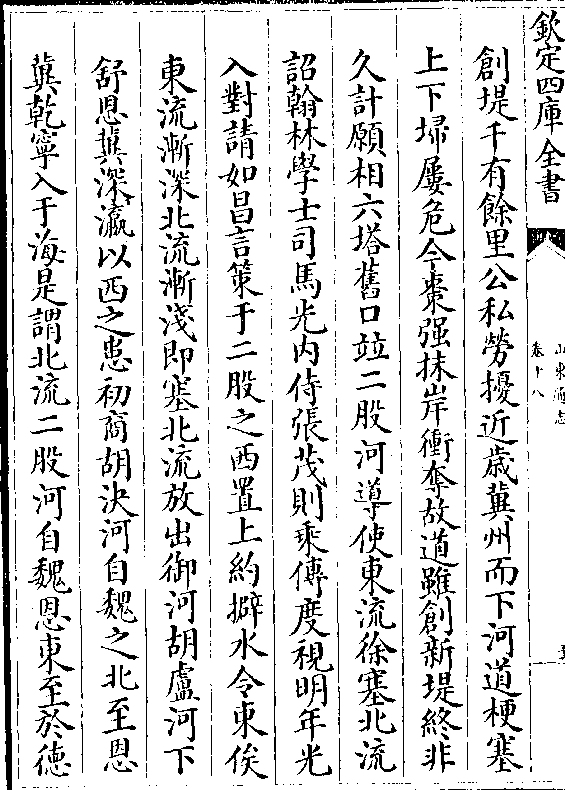 欽定四庫全書
山東通志
卷十八
創堤千有餘里公私勞擾近歲冀州而下河道梗塞
上下埽屢危今棗强抹岸衝奪故道雖創新堤終非
久計願相六塔舊口竝二股河導使東流徐塞北流
詔翰林學士司馬光内侍張茂則乘傳度視明年光
入對請如昌言策于二股之西置上約擗水令東俟
東流漸深北流漸淺即塞北流放出御河胡盧河下
舒恩冀深瀛以西之患初商胡決河自魏之北至恩
冀乾寧入于海是謂北流二股河自魏恩東至於德